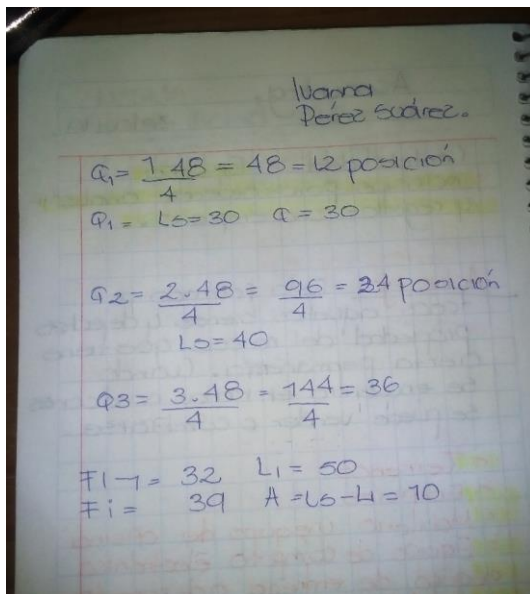 Ivanna
Pérez Suárez.
Q1 = 1.48/4 = 48 = 12 posición
Q1 = Ls=30 Q = 30
Q2 = 2.48/4 = 96/4 = 24 posición
Ls=40
Q3 = 3.48/4 = 144/4 = 36
Fi-1 = 32 Li = 50
Fi = 39 A = Ls-Li = 10